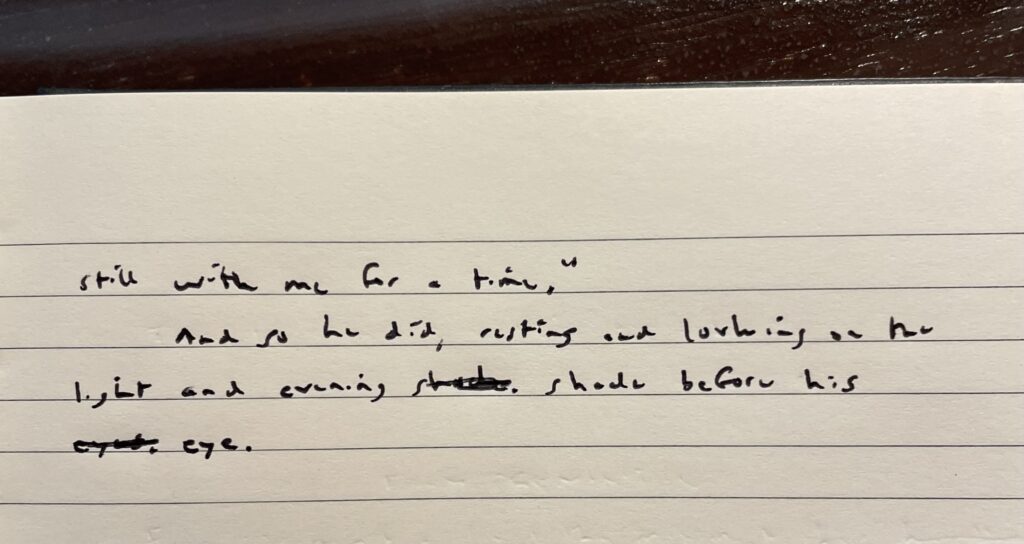 still with me for a time."
And so he did, resting and looking on the
light and evening shade. shade before his
eyes. eye.